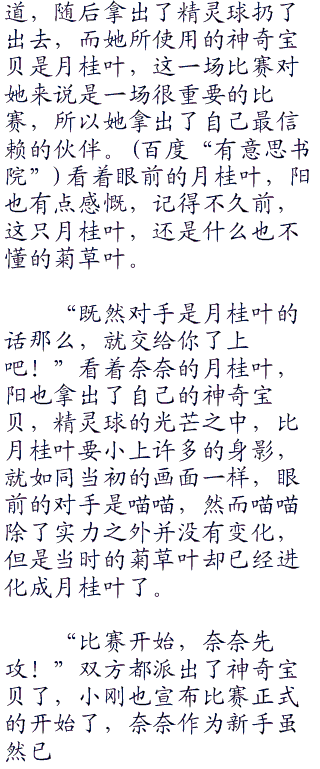 道，随后拿出了精灵球扔了
出去，而她所使用的神奇宝
贝是月桂叶，这一场比赛对
她来说是一场很重要的比
赛，所以她拿出了自己最信
赖的伙伴。(百度“有意思书
院”)看着眼前的月桂叶，阳
也有点感慨，记得不久前，
这只月桂叶，还是什么也不
懂的菊草叶。
“既然对手是月桂叶的
话那么，就交给你了上
吧！”看着奈奈的月桂叶，
阳也拿出了自己的神奇宝
贝，精灵球的光芒之中，比
月桂叶要小上许多的身影，
就如同当初的画面一样，眼
前的对手是喵喵，然而喵喵
除了实力之外并没有变化，
但是当时的菊草叶却已经进
化成月桂叶了。
“比赛开始，奈奈先
攻！”双方都派出了神奇宝
贝了，小刚也宣布比赛正式
的开始了，奈奈作为新手虽
然已